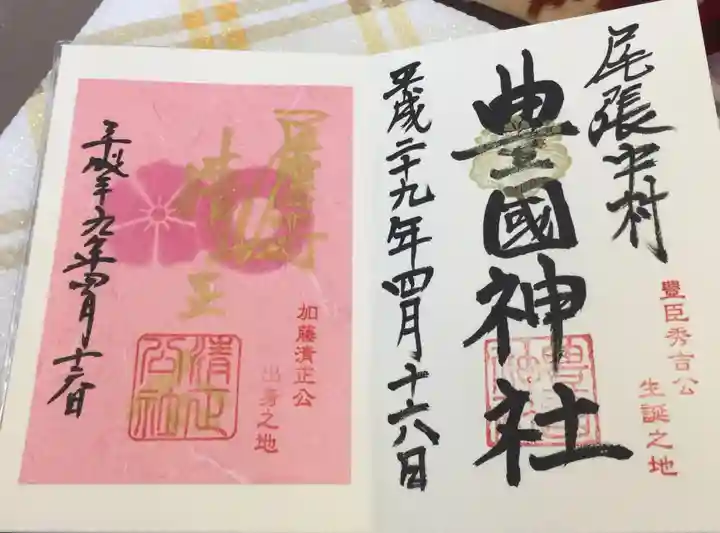 尾張中村
豊國神社
豐臣秀吉公
生誕之地
平成二十九年四月十六日
清正
加藤清正公
出身之地
清正
公社
平成二十九年四月十六日